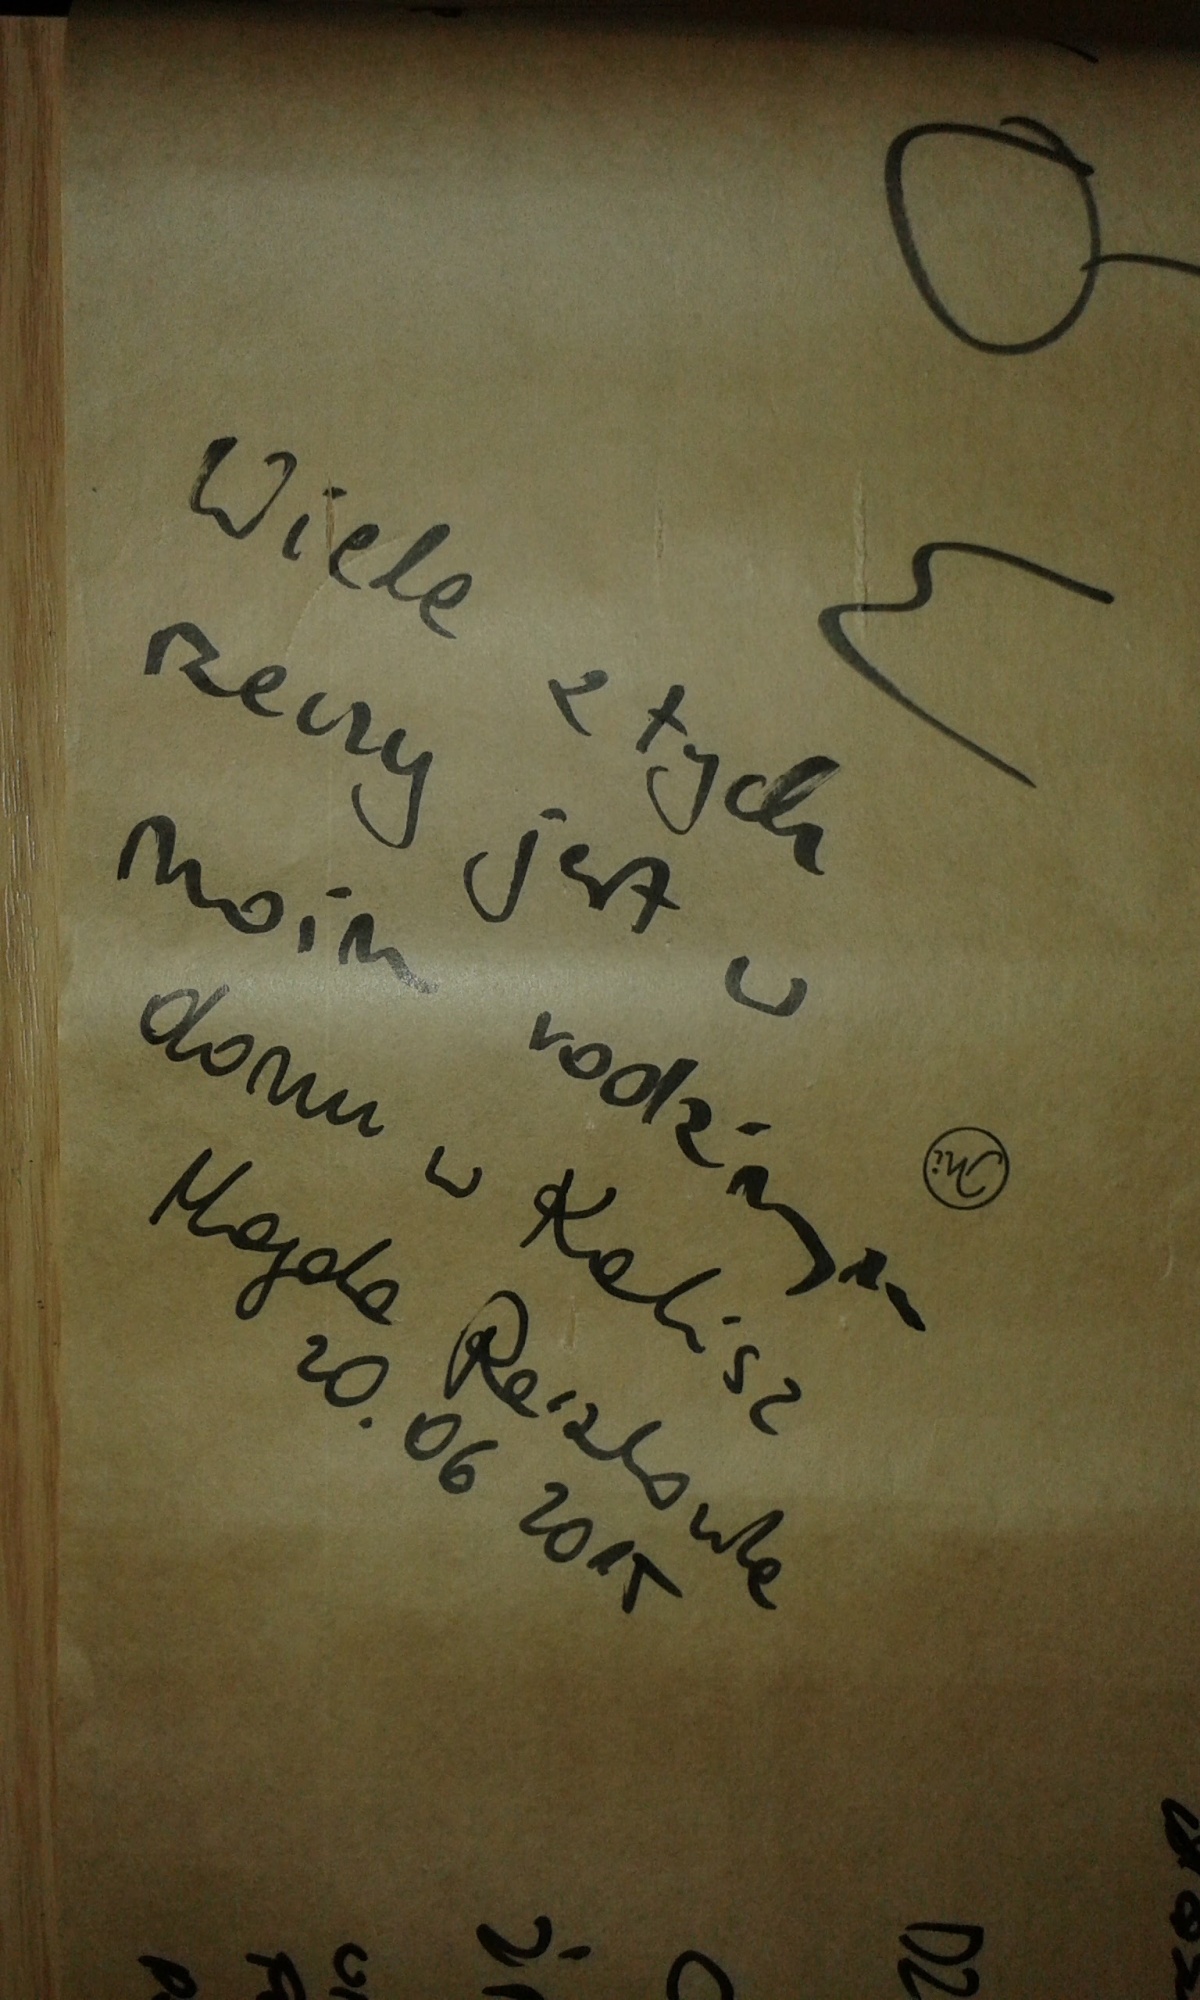 Wiele z tych
rzeczy jest w
moim rodzinnym
domu w Kalisz
Magda
20.06 2015